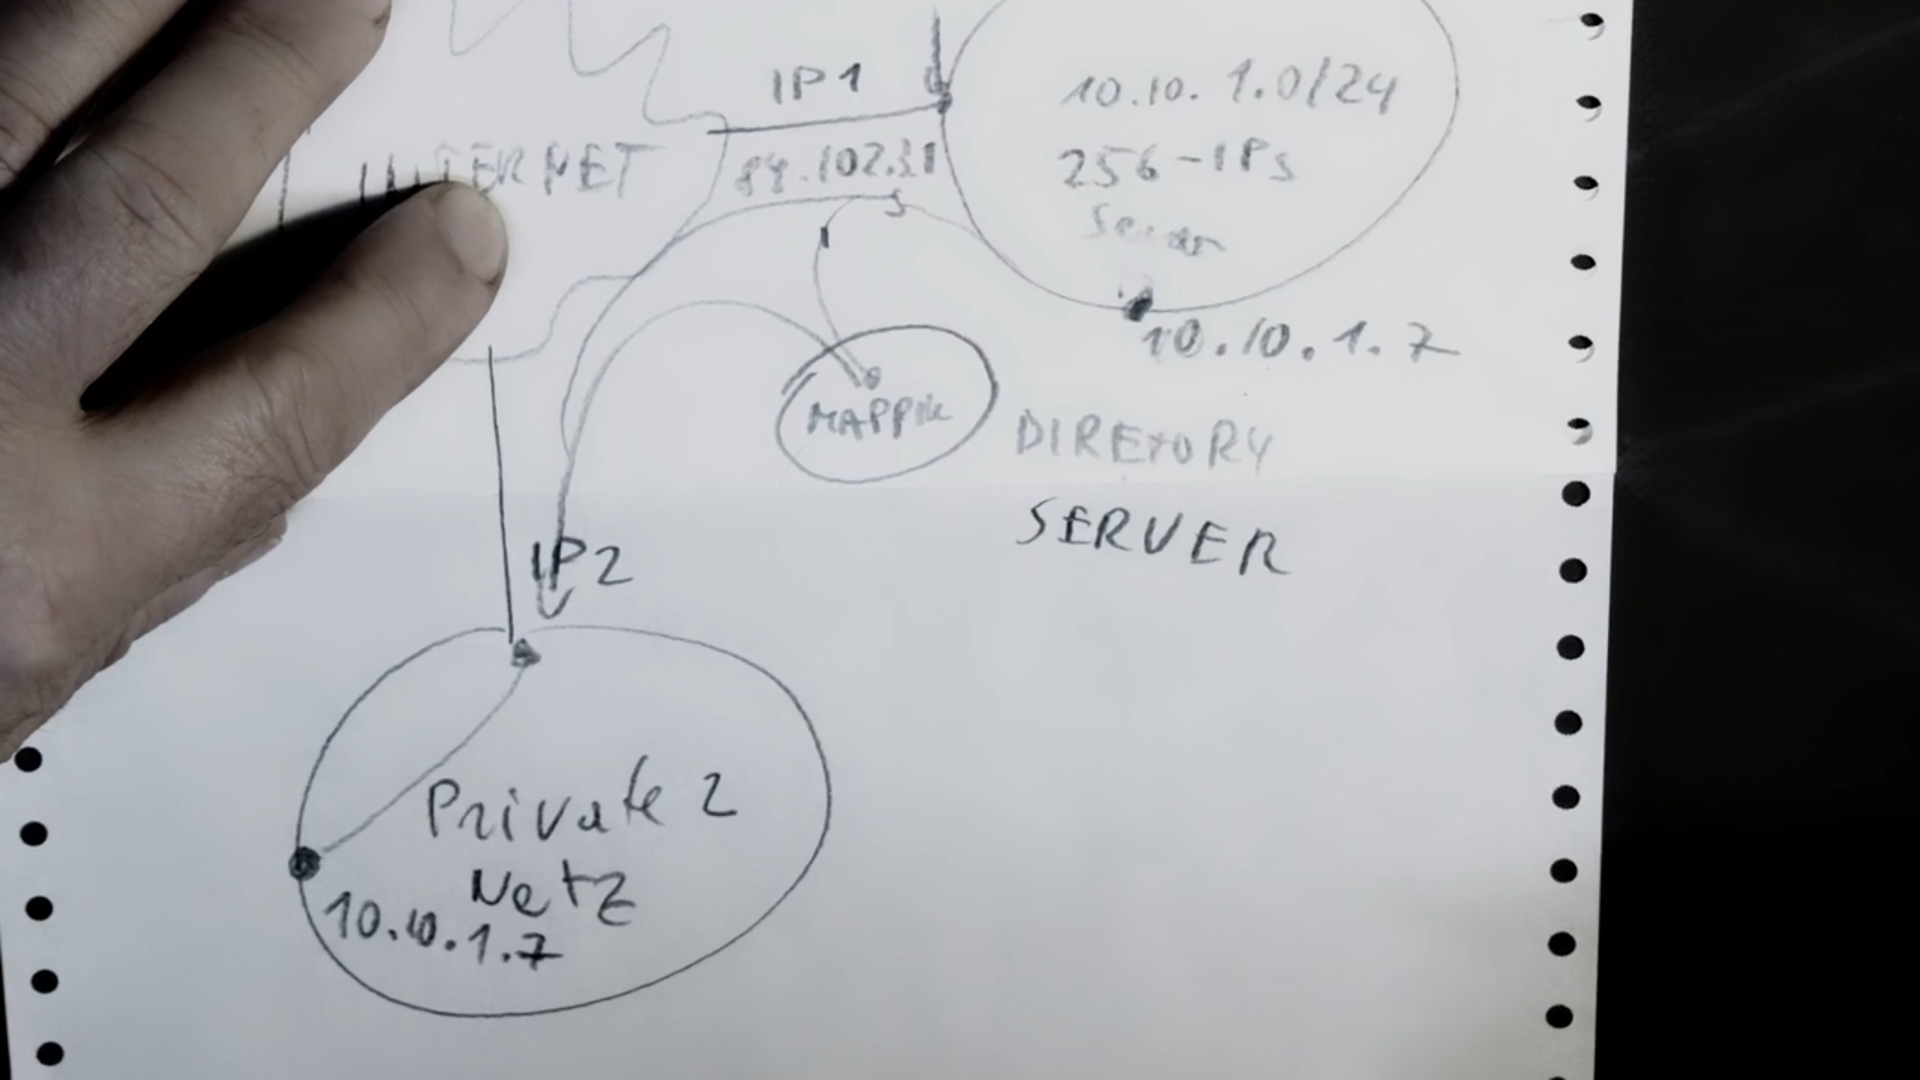 IP1
10.10.1.0/24
INTERNET
84.102.31
256-IPs
10.10.1.7
DIRECTORY
SERVER
IP2
Private 2
Netz
10.10.1.7